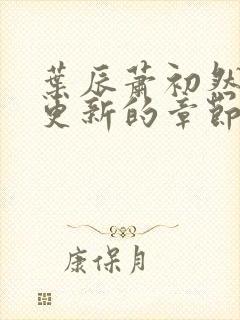 葉辰蕭初然
更新的章節
康保月